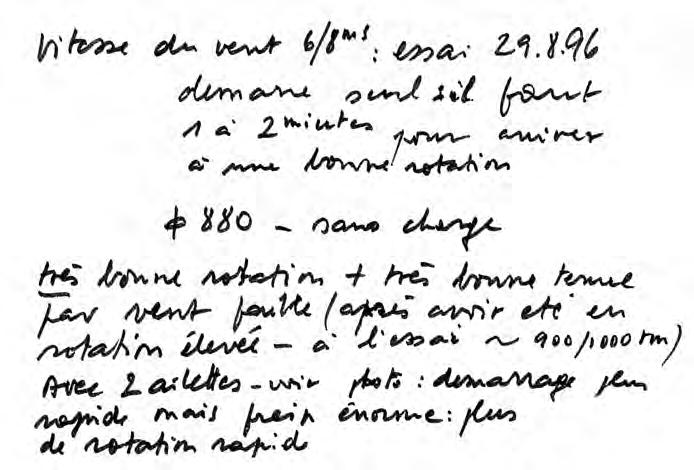 Vitesse du vent 6/8ms : essai 29.8.96
demarre seul s'il faut
1 à 2 miutes pour arriver
à une bonne rotation
ϕ 880 - sans charge
très bonne rotation + très bonne tenue
par vent faible (après avoir eté en
rotation élevée - à l'essai ~ 900/1000 tm)
Avec 2 ailettes - voir photo : demarrage plus
rapide mais frein énorme : plus
de rotation rapide